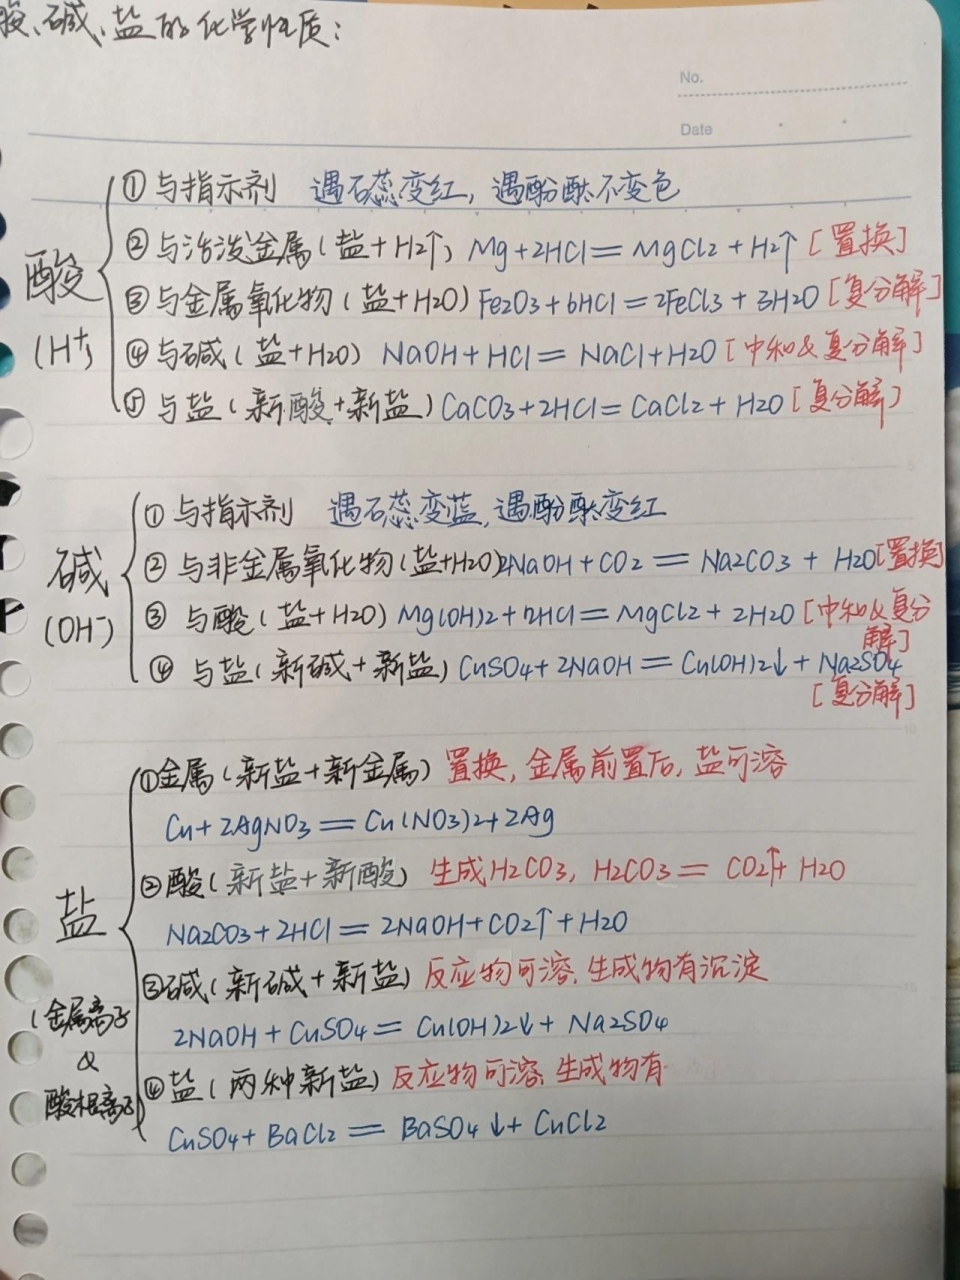 酸、碱、盐的化学性质：
No.
Date
酸
(H⁺)
①与指示剂 遇石蕊变红，遇酚酞不变色
②与活泼金属(盐+H2↑) Mg+2HCl=MgCl2+H2↑[置换]
③与金属氧化物(盐+H2O) Fe2O3+6HCl=2FeCl3+3H2O[复分解]
④与碱(盐+H2O) NaOH+HCl=NaCl+H2O[中和&复分解]
⑤与盐(新酸+新盐)CaCO3+2HCl=CaCl2+H2O[复分解]
碱
(OH⁻)
①与指示剂 遇石蕊变蓝，遇酚酞变红
②与非金属氧化物(盐+H2O)2NaOH+CO2=Na2CO3+H2O[置换]
③与酸(盐+H2O) Mg(OH)2+2HCl=MgCl2+2H2O[中和&复分
解]
④与盐(新碱+新盐)CuSO4+2NaOH=Cu(OH)2↓+Na2SO4
[复分解]
盐
(金属离子
&
酸根离子)
①金属(新盐+新金属) 置换，金属前置后，盐可溶
Cu+2AgNO3=Cu(NO3)2+2Ag
②酸(新盐+新酸) 生成H2CO3，H2CO3=CO2↑+H2O
Na2CO3+2HCl=2NaOH+CO2↑+H2O
③碱(新碱+新盐)反应物可溶，生成物有沉淀
2NaOH+CuSO4=Cu(OH)2↓+Na2SO4
④盐(两种新盐)反应物可溶，生成物有
CuSO4+BaCl2=BaSO4↓+CuCl2